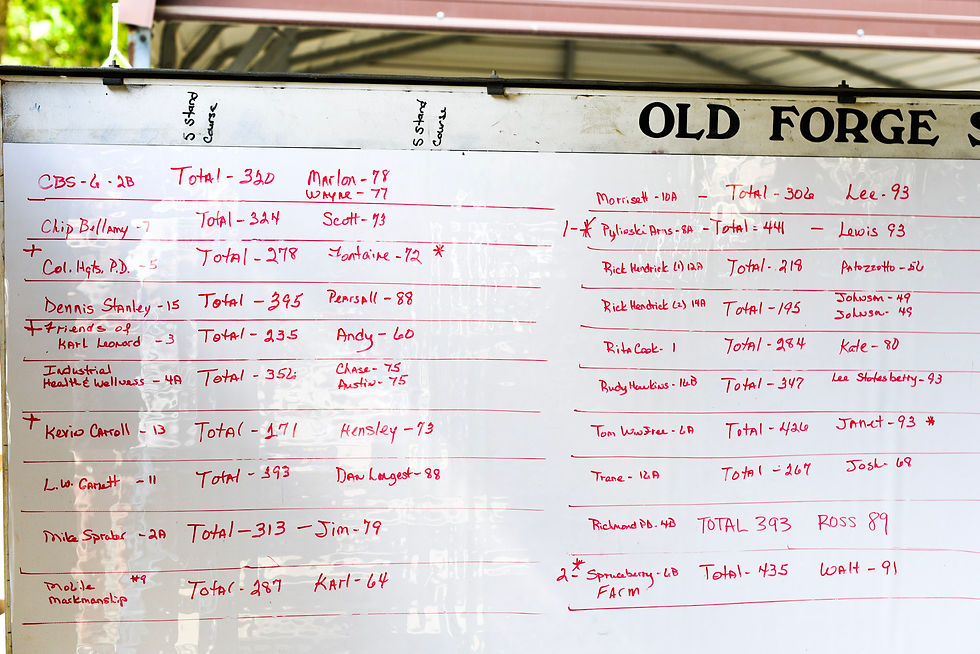 5 Stand
Course
5 Stand
Course
OLD FORGE S
CBS-6-2B Total-320 Marlon-78
Wayne-77
Chip Bellamy-7 Total-324 Scott-73
+ Col. Hgts. P.D.-5 Total-278 Fontaine-72 *
Dennis Stanley-15 Total-395 Pearsall-88
+ Friends of
Karl Leonard-3 Total-235 Andy-60
Industrial
Health & Wellness-4A Total- Chase-75
Austin-75
+ Kevin Carroll-13 Total-171 Hensley-73
L.W. -11 Total-393 Dan Longest-88
Mike -2A Total-313-Jim-79
Mobile #9
Markmanship Total-287 Karl-64
Morrisett-10A - Total-306 Lee-93
1-* Arms-8A-Total-441 - Lewis 93
Rick Hendrick (1) 12A Total-218
Rick Hendrick (2) 14A Total-195 Johnson-49
Johnson-49
Rita Cook-1 Total-284 Kate-80
Rudy Hawkins-16B Total-347 Lee Statesberry-93
Tom -6A Total-426 Janet-93 *
Trane-12A Total-267 Josh-68
Richmond PD.-4B TOTAL 393 ROSS 89
2-* Spruceberry-6B Total-435 Walt-91
FArm